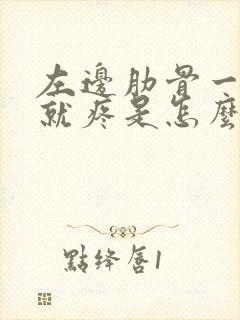 左邊肋骨一
就疼是怎麼
點絳唇1